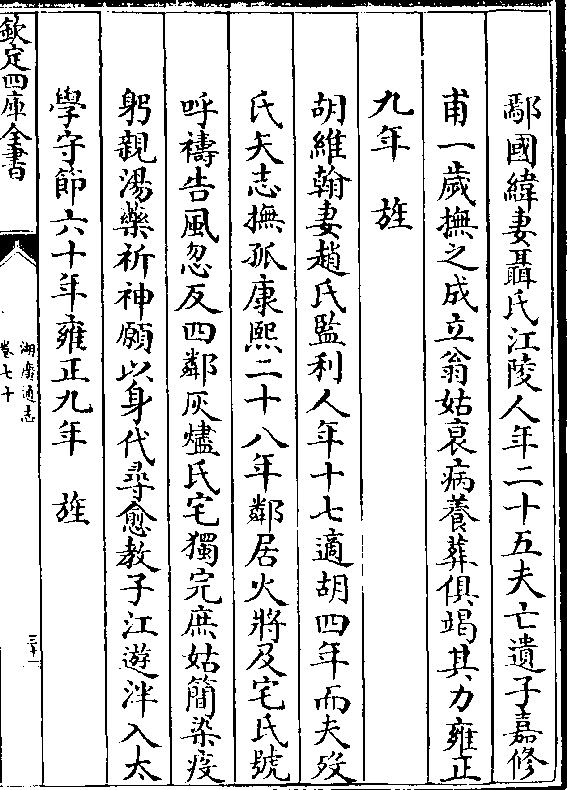 鄢國緯妻聶氏江陵人年二十五夫亡遺子嘉修
甫一歲撫之成立翁姑衰病養葬俱竭其力雍正
九年 旌
胡維翰妻趙氏監利人年十七適胡四年而夫歿
氏矢志撫孤康熙二十八年鄰居火將及宅氏號
呼禱告風忽反四鄰灰燼氏宅獨完庶姑簡染疫
躬親湯藥祈神願以身代尋愈教子江遊泮入太
學守節六十年雍正九年 旌
欽定四庫全書
湖廣通志
卷七十